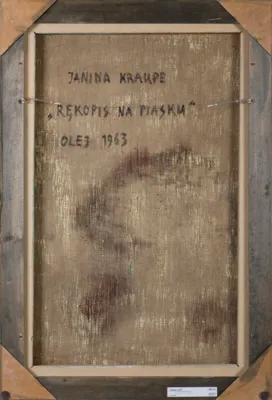 JANINA KRAUPE
„RĘKOPIS NA PIASKU"
OLEJ 1963